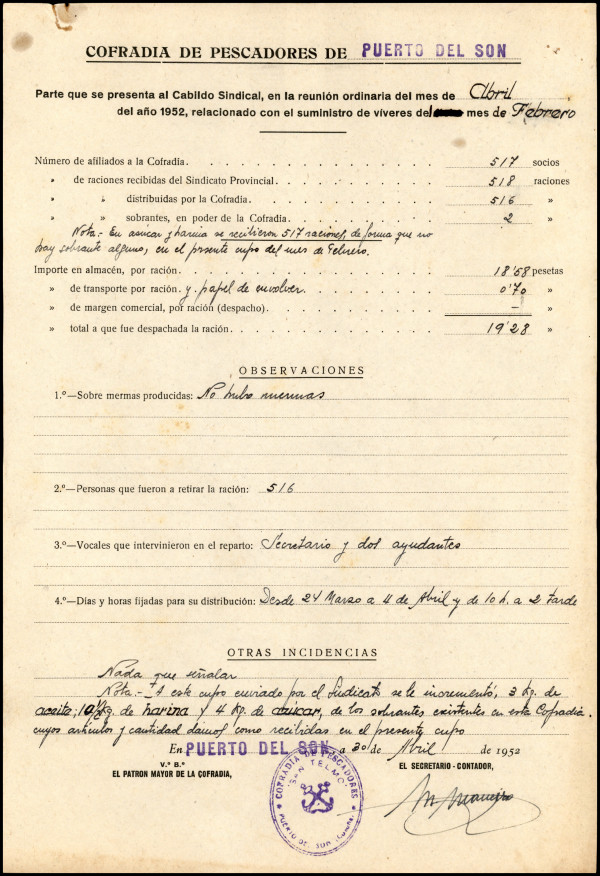 COFRADIA DE PESCADORES DE PUERTO DEL SON
Parte que se presenta al Cabildo Sindical, en la reunión ordinaria del mes de Abril
del año 1952, relacionado con el suministro de víveres del mes de Febrero
Número de afiliados a la Cofradía. 517 socios
» de raciones recibidas del Sindicato Provincial. 518 raciones
» » distribuidas por la Cofradía. 516 »
» » sobrantes, en poder de la Cofradía. 2 »
Nota.- En azúcar y harina se recibieron 517 raciones, de forma que no
hay sobrante alguno, en el presente cupo del mes de Febrero.
Importe en almacén, por ración. 18'58 pesetas
» de transporte por ración. y papel de envolver. 0'70 »
» de margen comercial, por ración (despacho). — »
» total a que fue despachada la ración. 19'28 »
OBSERVACIONES
1.º—Sobre mermas producidas: No hubo mermas
2.º—Personas que fueron a retirar la ración: 516
3.º—Vocales que intervinieron en el reparto: Secretario y dos ayudantes
4.º—Días y horas fijadas para su distribución: Desde 24 Marzo a 4 de Abril y de 10 h. a 2 tarde
OTRAS INCIDENCIAS
Nada que señalar
Nota.- A este cupo enviado por el Sindicato se le incrementó, 3 Kg. de
aceite; Kg. de harina y 4 Kg. de azúcar, de los sobrantes existentes en esta Cofradía
cuyos artículos y cantidad damos como recibidas en el presente cupo
En PUERTO DEL SON a 30 de Abril de 1952
V.º B.º
EL PATRON MAYOR DE LA COFRADIA,
EL SECRETARIO-CONTADOR,
COFRADIA DE PESCADORES
"SAN TELMO"
PUERTO DEL SON (CORUÑA)